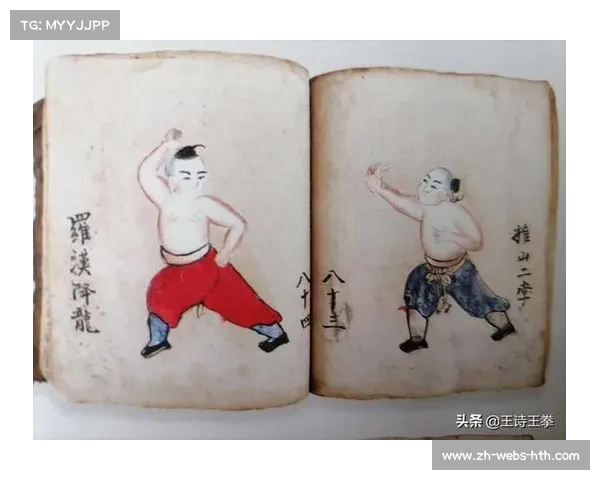 TG: MYYJJPP
羅漢降龍
八十四
八十三
推山二掌
头条 @王诗王拳
www.zh-webs-hth.com